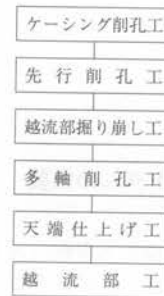 ケーシング削孔工
先行削孔工
越流部掘り崩し工
多軸削孔工
天端仕上げ工
越流部工